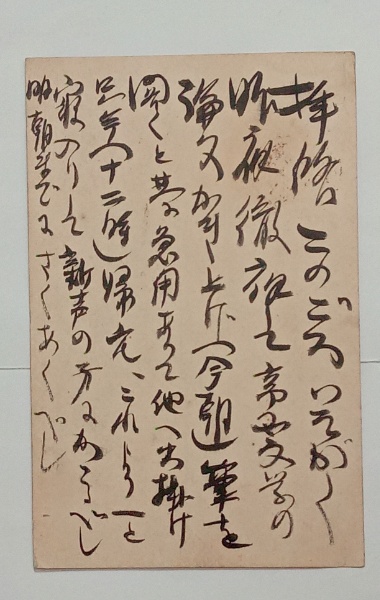 拝啓 このごろいそがしく
昨夜徹夜して 文学の
論文かき上げ今朝筆を
急用ありて他へ出掛け
只今十二時帰宅、これより一と
寝入りして新声の方にかゝるべし
明朝までにさしあぐべし